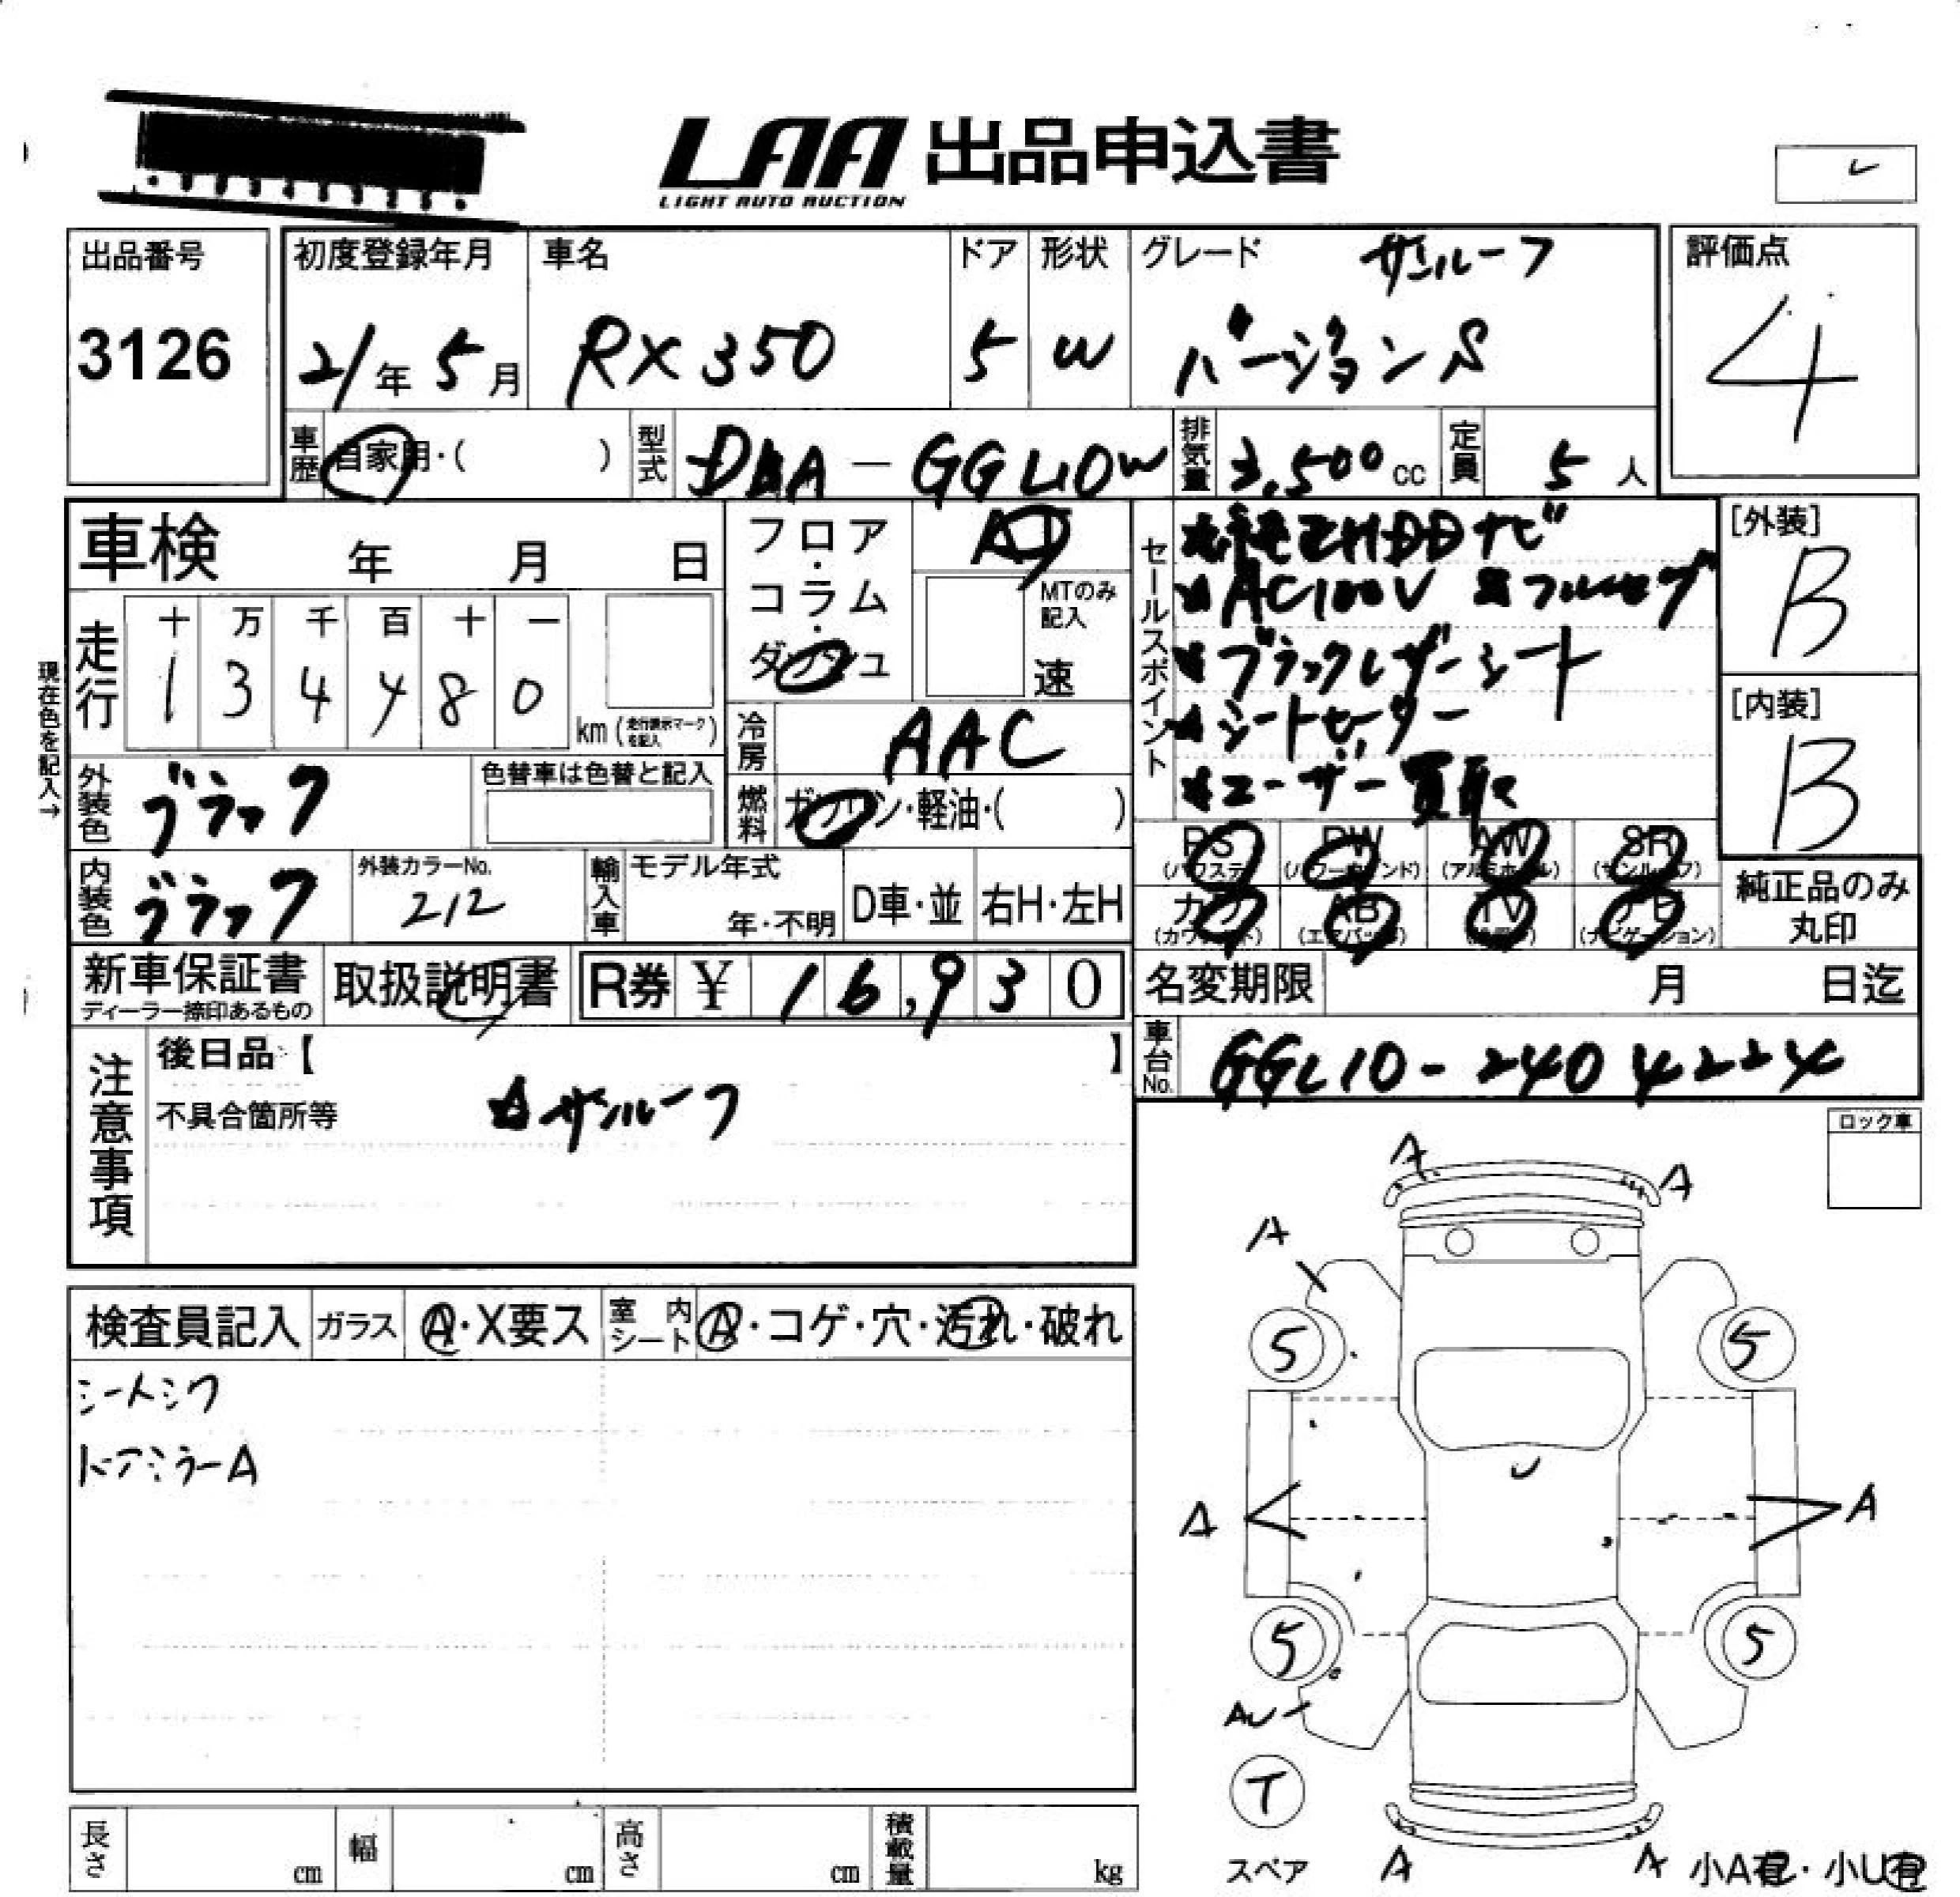 LAA 出品申込書
LIGHT AUTO AUCTION
出品番号 初度登録年月 車名 ドア 形状 グレード サンルーフ 評価点
3126 21年 5月 RX350 5 W バージョンS 4
車歴 自家用・( ) 型式 DBA-GGL10W 排気量 3,500cc 定員 5人
車検 年 月 日
フロア・コラム・ダッシュ AT
MTのみ記入 速
セールスポイント
☆純正HDDナビ
☆AC100V ☆フルセグ
☆ブラックレザーシート
☆シートヒーター
☆ユーザー買取
[外装] B
[内装] B
現在色を記入→
走行 十 万 千 百 十 一
1 3 4 4 8 0 km (走行表示マークを記入)
冷房 AAC
外装色 ブラック 色替車は色替と記入
燃料 ガソリン・軽油・( )
PS PW AW SR
(パワステ) (パワーウインド) (アルミホイル) (サンルーフ)
カワ AB TV ナビ
(エアバッグ) (ナビゲーション)
純正品のみ丸印
内装色 ブラック 外装カラーNo. 212 輸入車 モデル年式 年・不明 D車・並 右H・左H
新車保証書 取扱説明書 R券 ¥ 16,930
ディーラー捺印あるもの
名変期限 月 日迄
車台No. GGL10-2404224
注意事項
後日品【 】
不具合箇所等 ☆サンルーフ
ロック車
A A
A
検査員記入 ガラス A・X要ス 室内シート A・コゲ・穴・汚れ・破れ
シートシワ
ドアミラーA
5 5
A A
5 5
AU
T
スペア A A 小A有・小U有
長さ cm 幅 cm 高さ cm 積載量 kg